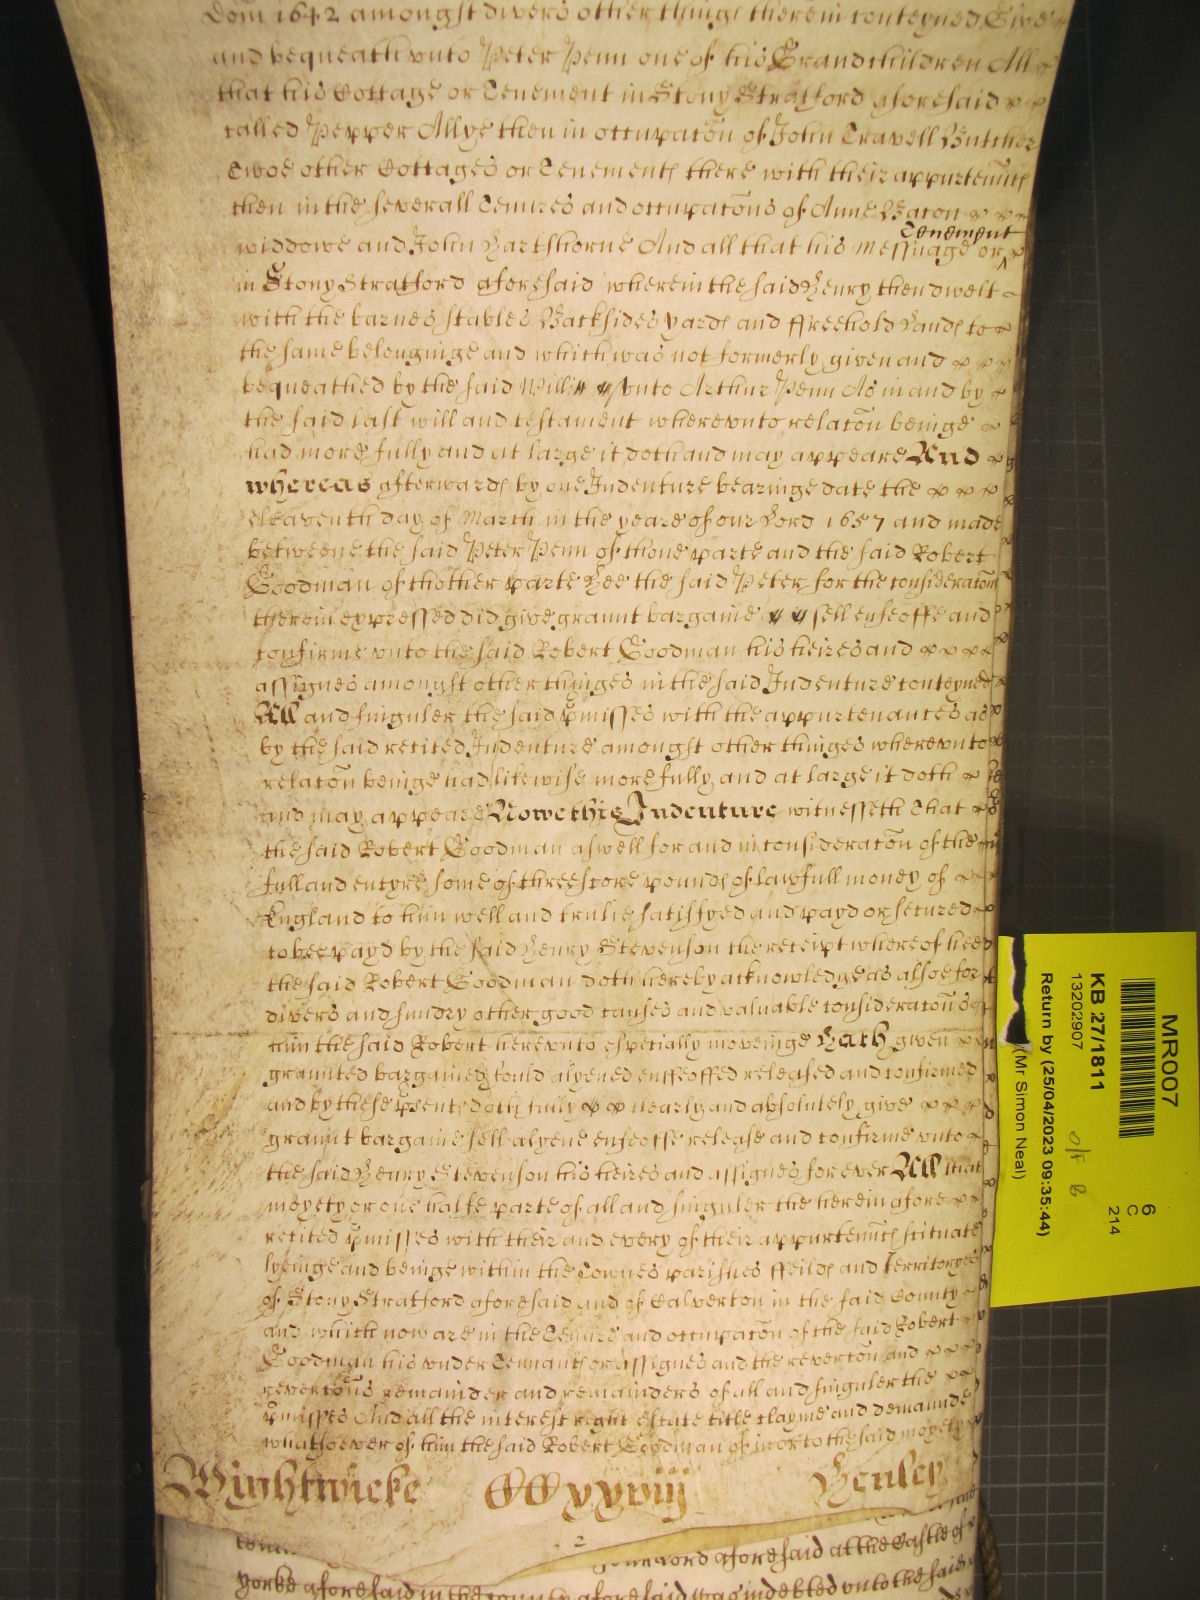 Dom 1642 amongst divers other things therein conteyned Give
and bequeath unto Peter Penn one of his Grandchildren All
that his Cottage or Tenement in Stony Stratford aforesaid
called Pepper Allye then in occupacõn of John Cravell Butcher
Twoe other Cottages or Tenements there with their appurtenñces
then in the severall Tenures and occupacõns of Anne Eaton
Tenement
widdowe and John Hartshorne And all that his messuage or
in Stony Stratford aforesaid wherein the said Henry then dwelt
with the barnes stables Backsides yards and ffreehold Lands to
the same belonginge and which was not formerly given and
bequeathed by the said Will unto Arthur Penn As in and by
the said last will and testament whereunto relacõn beinge
had more fully and at large it doth and may appeare And
whereas afterwards by one Indenture bearinge date the
eleaventh day of March in the yeare of our Lord 1657 and made
betweene the said Peter Penn of thone parte and the said Robert
Goodman of thother parte Hee the said Peter for the consideracõn
therein expressed did give graunt bargaine sell enfeoffe and
confirme unto the said Robert Goodman his heires and
assignes amongst other thinges in the said Indenture conteyned
All and singuler the said p̱misses with the appurtenances as
by the said recited Indenture amongst other thinges whereunto
relacõn beinge had likewise more fully and at large it doth
and may appeare Nowe this Indenture witnesseth That
the said Robert Goodman aswell for and in consideracõn of the
full and entyre some of threescore pounds of lawfull money of
England to him well and trulie satisfyed and payd or secured
to bee payd by the said Henry Stevenson the receipt whereof hee
the said Robert Goodman doth hereby acknowledge as alsoe for
divers and sundry other good causes and valuable consideracõns
him the said Robert hereunto especially moveinge Hath given
graunted bargained sould alyened enffeoffed released and confirmed
and by these p̱sents doth fully clearly and absolutely give
graunt bargaine sell alyene enfeoffe release and confirme unto
the said Henry Stevenson his heires and assignes for ever All that
moyety or one halfe parte of all and singuler the herein afore
recited p̱misses with their and every of their appurtenñces scituate
lyeinge and beinge within the Townes parishes ffeilds and Territoryes
of Stony Stratford aforesaid and of Calverton in the said County
and which now are in the Tenure and occupacõn of the said Robert
Goodman his under Tennants or assignes and the revercõn and
revercõns remainder and remainders of all and singuler the
p̱misses And all the interest right estate title clayme and demaunde
whatsoever of him the said Robert Goodman of in or to the said moyety
Wightwicke CCxxviij Henley
2
Lord aforesaid at the Castle of
Yorke aforesaid in the county aforesaid was indebted unto the said
MR007
6
C
214
KB 27/1811
13202907
Return by (25/04/2023 09:35:44)
(Mr Simon Neal)